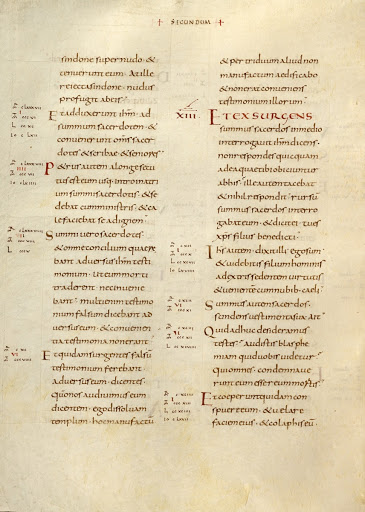 + SECUNDUM +
sindone super nudo · &
tenuerunt eum · At ille
reiecta sindone · nudus
profugit ab eis ·
Et adduxerunt ihm · ad
summum sacerdotem · &
convenerunt oms sacer
dotes · & scribae · & seniores ·
Petrus autem a longe secu
tus est eum usq · intro in atri
um summi sacerdotis · & se
debat cum ministris · & ca
lefaciebat se ad ignem ·
Summi vero sacerdotes ·
& omne concilium quaere
bant adversus ihm testi
monium · ut eum morti
traderent · nec invenie
bant · multi enim testimo
nium falsum dicebant ad
versus eum · & convenien
tia testimonia non erant ·
Et quidam surgentes · falsū
testimonium ferebant ·
adversus eum · dicentes ·
qūo nos audivimus eum
dicentem · ego dissolvam
templum · hoc manu factū
& per triduum aliud non
manu factum aedificabo ·
& non erat conveniens
testimonium illorum ·
XIII · ET EXSURGENS
summus sacerdos in medio
interrogavit ihm dicens ·
non respondis quicquam
ad ea quae tibi obiciuntur
ab his · ille autem tacebat ·
& nihil respondit · rursū
summus sacerdos interro
gabat eum · & dicit ei · tu es
xps · filius benedicti ·
Ihs autem · dixit illi · ego sum ·
& videbitis filium hominis
a dextris sedentem virtutis ·
& venientē cum nubib · caeli ·
Summus autem sacerdos ·
scindens vestimenta sua · ait ·
Quid adhuc desideramus
testes · audistis blasphe
miam quid vobis videtur ·
qui omnes · condemnave
runt eum esse reum mortis ·
Et coeperunt quidam con
spuere eum · & velare
faciem eius · & colaphis eū ·